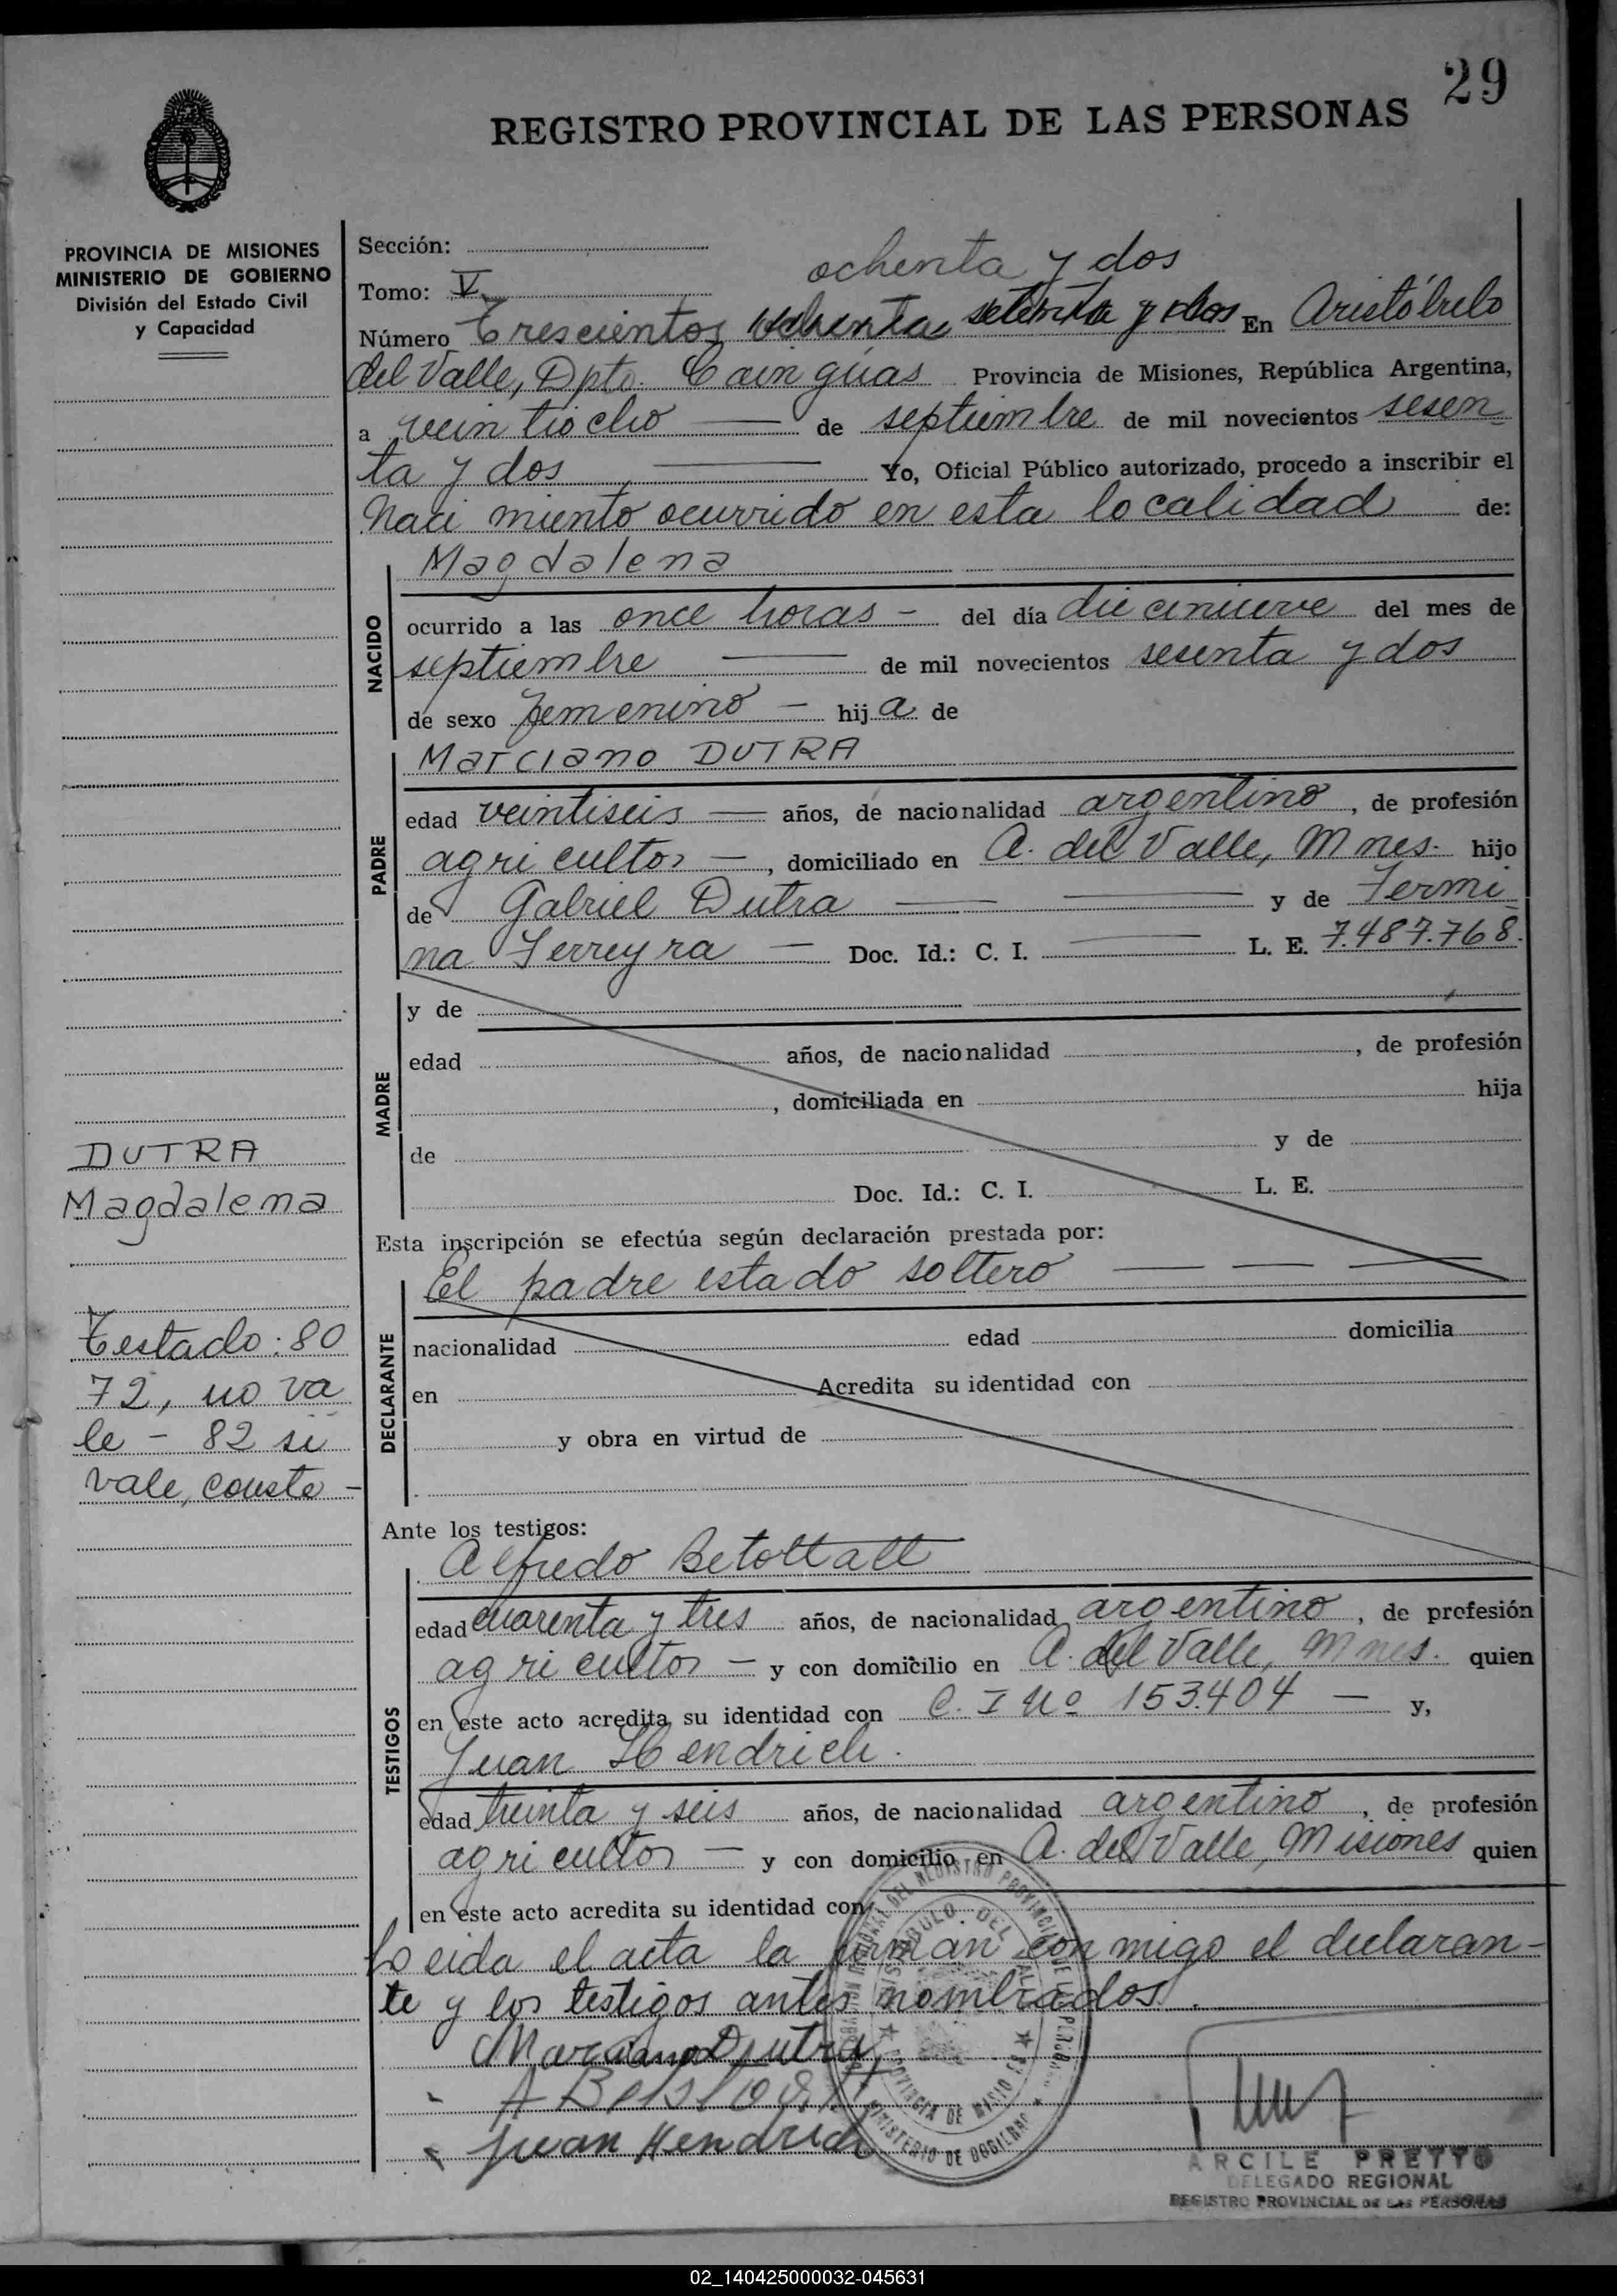 29
REGISTRO PROVINCIAL DE LAS PERSONAS
PROVINCIA DE MISIONES
MINISTERIO DE GOBIERNO
División del Estado Civil
y Capacidad
Sección:
ochenta y dos
Tomo: V
Número Trescientos ochenta setenta y dos En Aristóbulo
del Valle, Dpto. Cainguas Provincia de Misiones, República Argentina,
a veintiocho de septiembre de mil novecientos sesen
ta y dos Yo, Oficial Público autorizado, procedo a inscribir el
Nacimiento ocurrido en esta localidad de:
NACIDO
Magdalena
ocurrido a las once horas - del día diecinueve del mes de
septiembre de mil novecientos sesenta y dos
de sexo femenino - hija de
PADRE
Marciano DUTRA
edad veintiseis años, de nacionalidad argentino, de profesión
agricultor -, domiciliado en A. del Valle, Mnes. hijo
de Gabriel Dutra y de Fermi
na Ferreyra - Doc. Id.: C. I. L. E. 7.487.768.
MADRE
y de
edad años, de nacionalidad , de profesión
, domiciliada en hija
de y de
Doc. Id.: C. I. L. E.
DUTRA
Magdalena
Esta inscripción se efectúa según declaración prestada por:
DECLARANTE
El padre estado soltero
nacionalidad edad domicilia
en Acredita su identidad con
y obra en virtud de
Testado: 80
72, no va
le - 82 si
vale, conste -
Ante los testigos:
TESTIGOS
Alfredo Betottatt
edad cuarenta y tres años, de nacionalidad argentino, de profesión
agricultor - y con domicilio en A. del Valle, Mnes. quien
en este acto acredita su identidad con C. I Nº 153.404 - y,
Juan Hendrich.
edad treinta y seis años, de nacionalidad argentino, de profesión
agricultor - y con domicilio en A. del Valle, Misiones quien
en este acto acredita su identidad con
Leida el acta la firman conmigo el declaran-
te y los testigos antes nombrados.
Marciano Dutra
Juan Hendrich
ARCILE PRETTO
DELEGADO REGIONAL
REGISTRO PROVINCIAL DE LAS PERSONAS
02_140425000032-045631